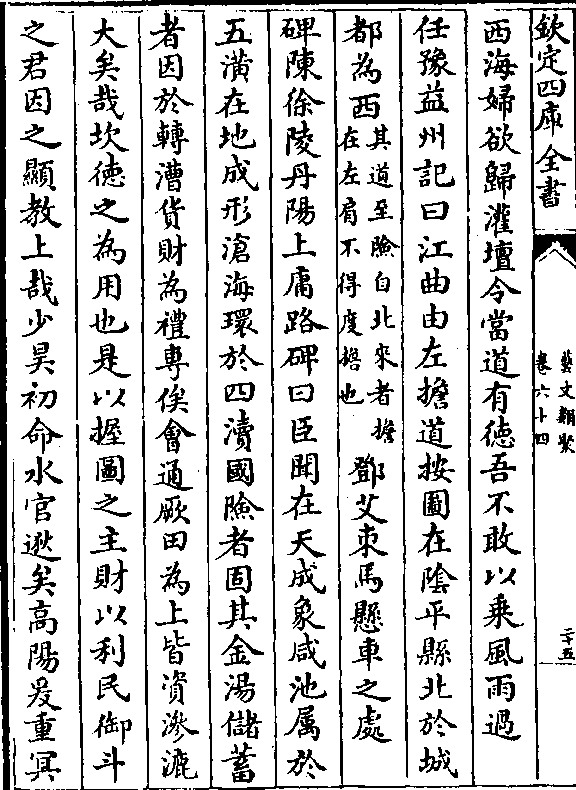 欽定四庫全書
藝文類聚
卷六十四
二十五
西海婦欲歸灌壇令當道有德吾不敢以乗風雨過
任豫益州記曰江曲由左擔道按圖在陰平縣北於城
都為西其道至險自北來者擔在左肩不得度擔也鄧艾束馬懸車之處
碑陳徐陵丹陽上庸路碑曰臣聞在天成象咸池屬於
五潢在地成形滄海環於四瀆國險者固其金湯儲蓄
者因於轉漕貨財為禮專俟會通厥田為上皆資滲漉
大矣哉坎徳之為用也是以握圖之主財以利民御斗
之君因之顯教上哉少昊初命水官逖矣高陽爰重冥